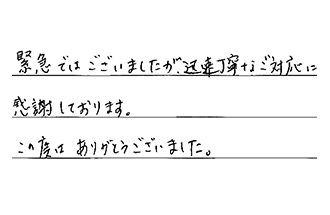 緊急ではございましたが、迅速丁寧なご対応に
感謝しております。
この度は ありがとうございました。